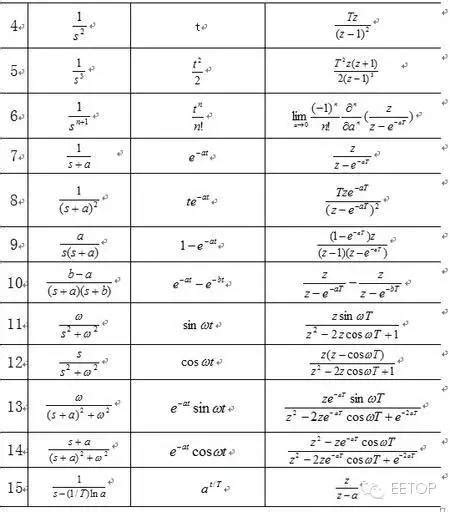 4 1/s² t Tz/(z−1)²
5 1/s³ t²/2 T²z(z+1)/2(z−1)³
6 1/sⁿ⁺¹ tⁿ/n! lim a→0 (−1)ⁿ/n! ∂ⁿ/∂aⁿ (z/(z−e⁻ᵃᵀ))
7 1/(s+a) e⁻ᵃᵗ z/(z−e⁻ᵃᵀ)
8 1/(s+a)² te⁻ᵃᵗ Tze⁻ᵃᵀ/(z−e⁻ᵃᵀ)²
9 a/s(s+a) 1−e⁻ᵃᵗ (1−e⁻ᵃᵀ)z/(z−1)(z−e⁻ᵃᵀ)
10 (b−a)/(s+a)(s+b) e⁻ᵃᵗ−e⁻ᵇᵗ z/(z−e⁻ᵃᵀ) − z/(z−e⁻ᵇᵀ)
11 ω/(s²+ω²) sin ωt z sin ωT/(z²−2z cos ωT+1)
12 s/(s²+ω²) cos ωt z(z−cos ωT)/(z²−2z cos ωT+1)
13 ω/((s+a)²+ω²) e⁻ᵃᵗ sin ωt ze⁻ᵃᵀ sin ωT/(z²−2ze⁻ᵃᵀ cos ωT+e⁻²ᵃᵀ)
14 (s+a)/((s+a)²+ω²) e⁻ᵃᵗ cos ωt (z²−ze⁻ᵃᵀ cos ωT)/(z²−2ze⁻ᵃᵀ cos ωT+e⁻²ᵃᵀ)
15 1/(s−(1/T)ln a) aᵗ/ᵀ z/(z−a)
EETOP